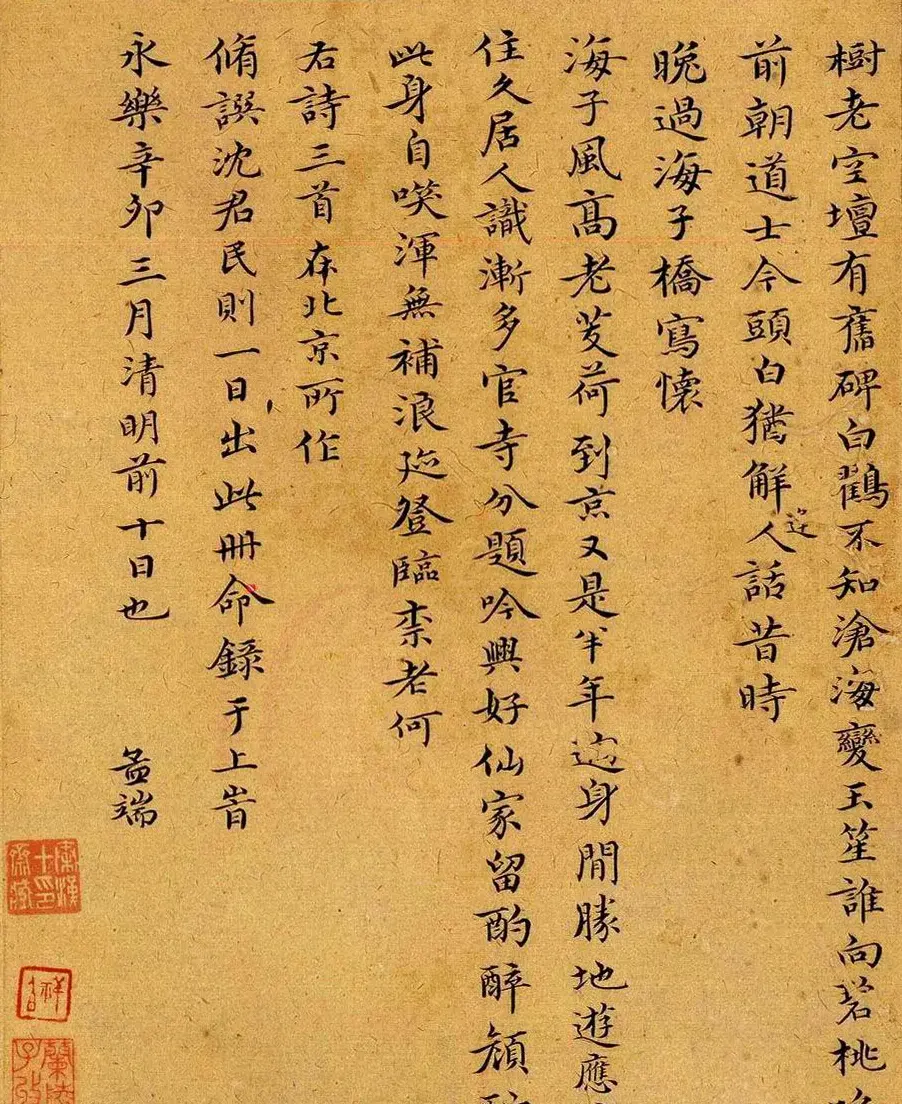 樹老空壇有舊碑白鸛不知滄海變玉笙誰向碧桃吹
前朝道士今頭白猶解人話昔時
逢
晚過海子橋寫懷
海子風高老芰荷到京又是半年過身閒勝地遊應
住久居人識漸多官寺分題吟興好仙家留酌醉顏酡
此身自唉渾無補浪跡登臨柰老何
右詩三首在北京所作
脩譔沈君民則一日出此冊命錄于上旹
永樂辛卯三月清明前十日也
孟端